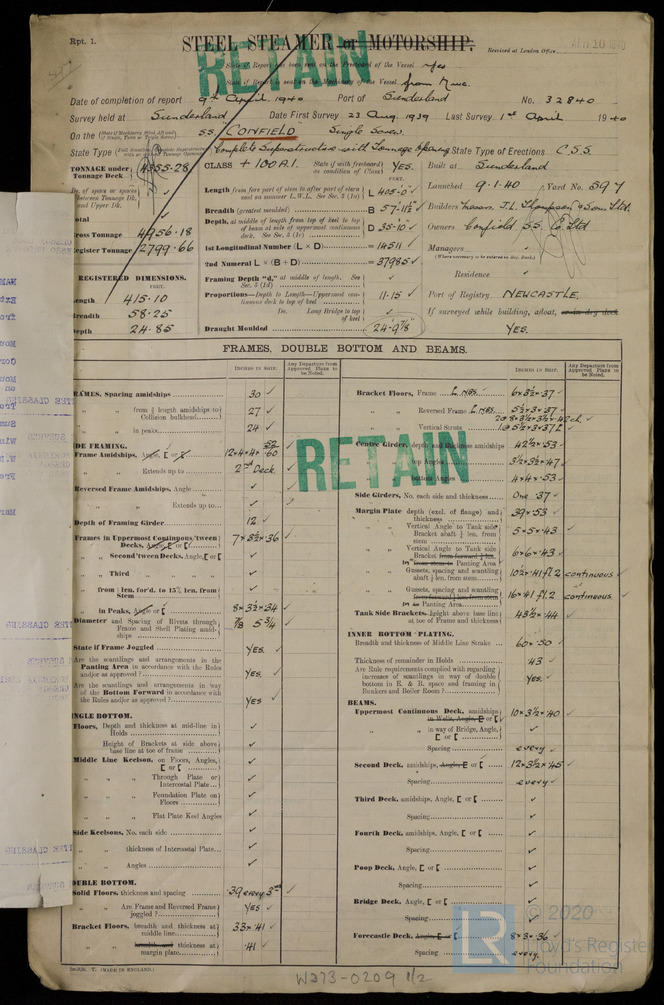 Rpt. 1.
STEEL STEAMER or MOTORSHIP.
Revised at London Office
RETAIN
State if Report has been sent on the Freeboard of the Vessel yes
State if Report is sent on the Machinery of the Vessel from Nwc.
Date of completion of report 9th April 1940 Port of Sunderland No. 32840
Survey held at Sunderland Date First Survey 23 Aug. 1939 Last Survey 1st April 1940
On the SS. "CONFIELD" Single Screw.
State Type Complete Superstructure with Tonnage Opening State Type of Erections C.S.S.
TONNAGE under Tonnage Deck 4355.28
CLASS + 100A1. State if with freeboard as condition of Class YES.
Built at Sunderland
Launched 9.1.40 Yard No. 597
Builders J.L. Thompson & Sons Ltd.
Owners Confield SS. Co. Ltd
Managers
Residence
Port of Registry NEWCASTLE.
If surveyed while building, afloat, or in dry dock
YES.
Total
Gross Tonnage 4956.18
Register Tonnage 2799.66
REGISTERED DIMENSIONS.
FEET.
Length 415.10
Breadth 58.25
Depth 24.85
Length from fore part of stem to after part of stern post on summer L.W.L. See Sec. 3 (1a) L 405'-0"
Breadth (greatest moulded) B 57'-11½"
Depth, at middle of length from top of keel to top of beam at side of uppermost continuous deck. See Sec. 3 (1c) D 35'-10
1st Longitudinal Number (L × D) = 14511
2nd Numeral L × (B + D) = 37985
Framing Depth "d," at middle of length. See Sec. 3 (1d)
Proportions—Depth to Length—Uppermost continuous deck to top of keel 11.15
Do. Long Bridge to top of keel
Draught Moulded 24'-9⅞
FRAMES, DOUBLE BOTTOM AND BEAMS.
INCHES IN SHIP.
Any Departure from Approved Plans to be Noted.
FRAMES, Spacing amidships 30
from ⅕ length amidships to Collision bulkhead 27
in peaks 24
SIDE FRAMING.
Frame Amidships, Angle, [ or [ 12×4×4×.60
Extends up to 2nd Deck
Reversed Frame Amidships, Angle
Extends up to
Depth of Framing Girder 12
Frames in Uppermost Continuous 'tween Decks, Angle, [ or [ 7×3½×.36
Second 'tween Decks, Angle, [ or [
Third
from ⅕ len. for'd. to 15% len. from Stem
in Peaks, Angle or [ 8×3½×.34
Diameter and Spacing of Rivets through Frame and Shell Plating amidships ⅞ 5¼
State if Frame Joggled YES.
Are the scantlings and arrangements in the Panting Area in accordance with the Rules and/or as approved? YES.
Are the scantlings and arrangements in way of the Bottom Forward in accordance with the Rules and/or as approved? YES
SINGLE BOTTOM.
Floors, Depth and thickness at mid-line in Holds
Height of Brackets at side above base line at toe of frame
Middle Line Keelson, on Floors, Angles, [ or [
Through Plate or Intercostal Plate
Foundation Plate on Floors
Flat Plate Keel Angles
Side Keelsons, No. each side
thickness of Intercostal Plate
Angles
DOUBLE BOTTOM.
Solid Floors, thickness and spacing .39 every 3rd
Are Frame and Reversed Frame joggled? YES
Bracket Floors, breadth and thickness at middle line 33×.41
breadth and thickness at margin plate .41
INCHES IN SHIP.
Any Departure from Approved Plans to be Noted.
Bracket Floors, Frame 6×3½×.37
Reversed Frame 5½×3×.37
Vertical Struts
Centre Girder, depth and thickness amidships 42½×.53
top Angles 3½×3½×.47
bottom Angles 4×4×.53
Side Girders, No. each side and thickness One .37
Margin Plate depth (excl. of flange) and thickness 39×.53
Vertical Angle to Tank side Bracket abaft ⅕ len. from stem 5×5×.43
Vertical Angle to Tank side Bracket from forward ⅕ len. in Panting Area 6×6×.43
Gussets, spacing and scantling abaft ⅕ len. from stem continuous
Gussets, spacing and scantling in Panting Area 16×.41 fl.2 continuous
Tank Side Brackets, height above base line at toe of Frame and thickness 43½×.44
INNER BOTTOM PLATING.
Breadth and thickness of Middle Line Strake 60×.50
Thickness of remainder in Holds .43
Are Rule requirements complied with regarding increases of scantlings in way of double bottom in E. & B. space and framing in Bunkers and Boiler Room? Yes.
BEAMS.
Uppermost Continuous Deck, amidships in Wells, Angle, [ or [ 10×3½×.40
in way of Bridge, Angle, [ or [
Spacing every
Second Deck, amidships, Angle, [ or [ 12×3½×.45
Spacing every
Third Deck, amidships, Angle, [ or [
Spacing
Fourth Deck, amidships, Angle, [ or [
Spacing
Poop Deck, Angle, [ or [
Spacing
Bridge Deck, Angle, [ or [
Spacing
Forecastle Deck, Angle, [ or [ 8×3×.36
Spacing every
RETAIN
(MADE IN ENGLAND.)
W273-0209 1/2
LR
© 2020
Lloyd's Register
Foundation